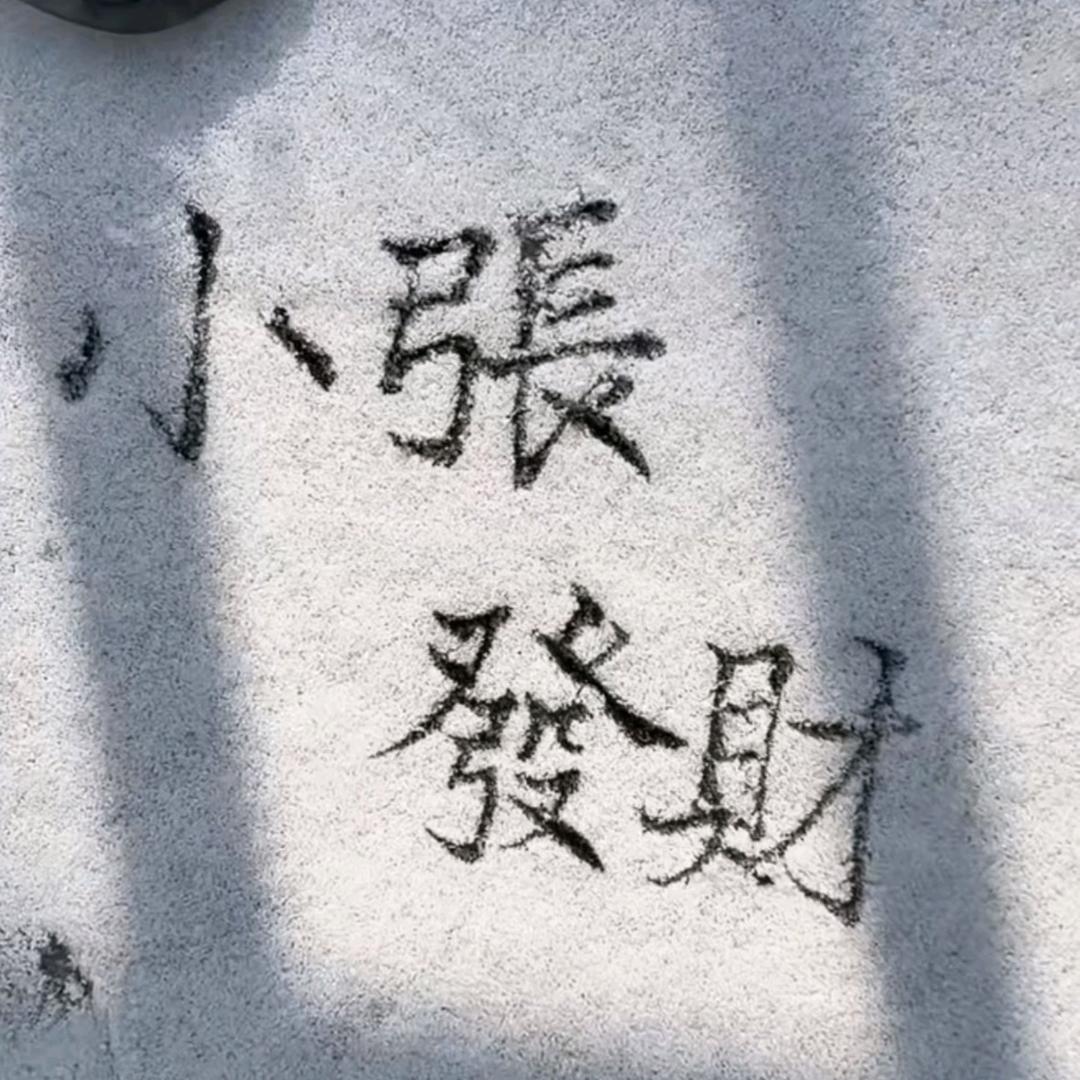 小張
發財